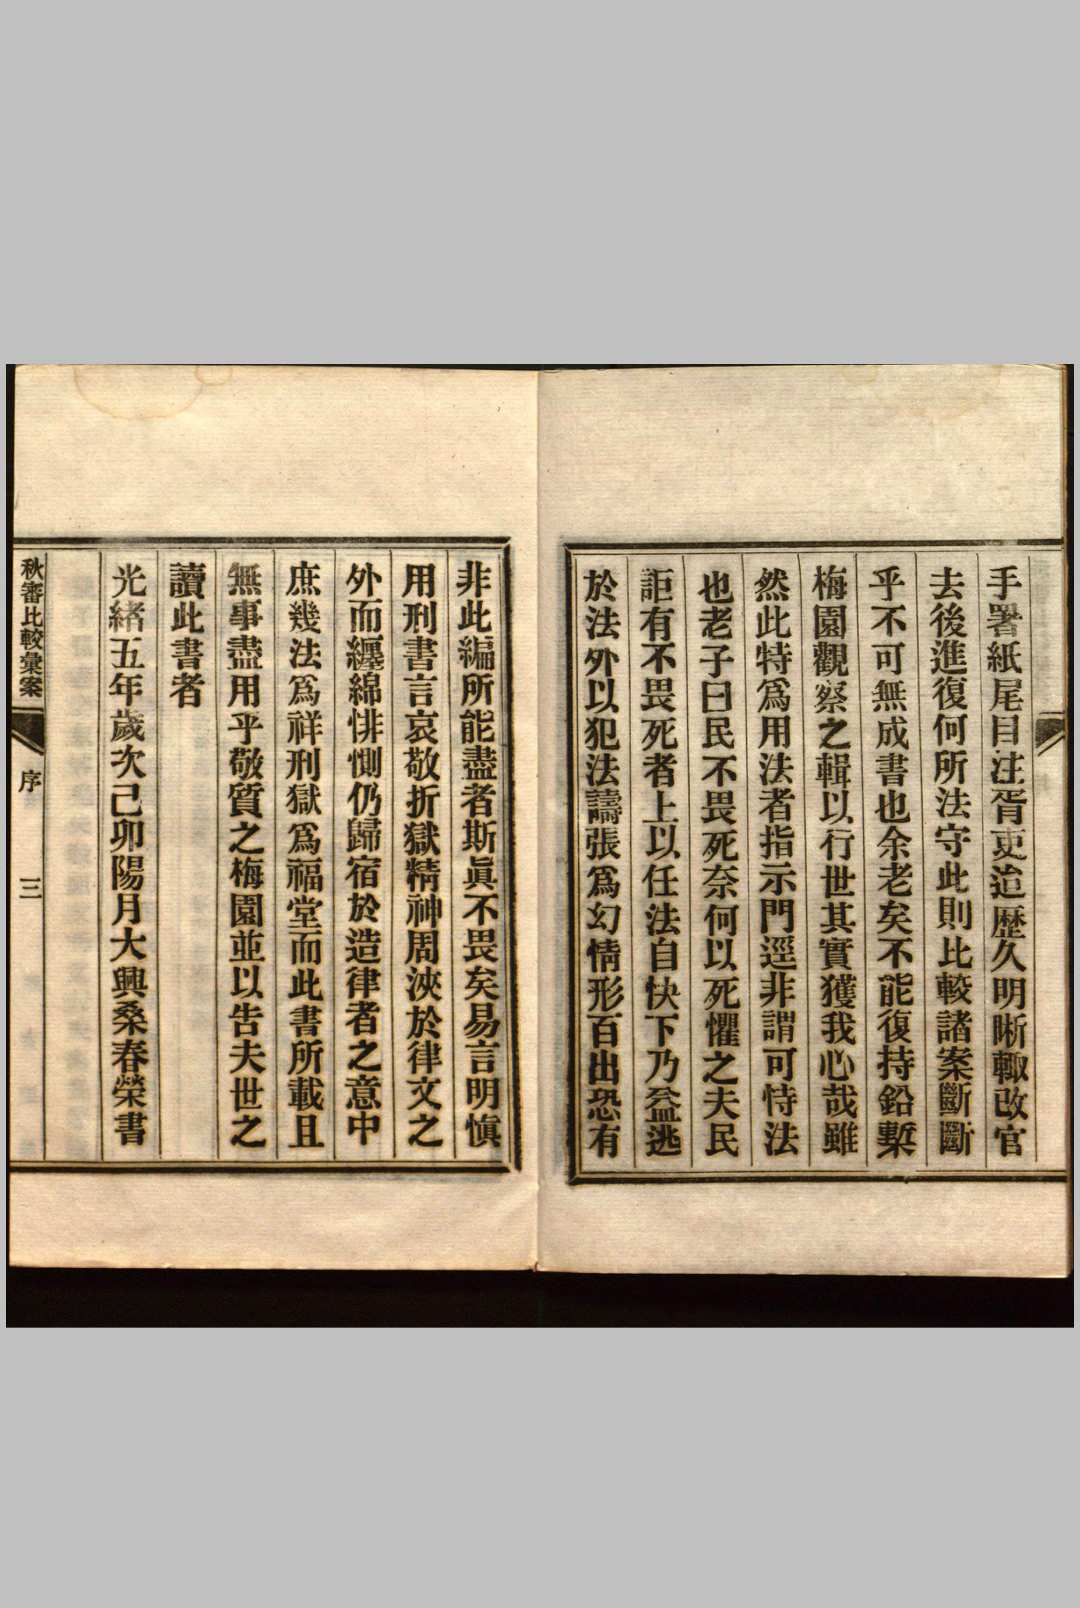 手署紙尾目注胥吏迨歷久明晰輙改官
去後進復何所法守此則比較諸案斷斷
乎不可無成書也余老矣不能復持鉛槧
梅園觀察之輯以行世其實獲我心哉雖
然此特爲用法者指示門逕非謂可恃法
也老子曰民不畏死奈何以死懼之夫民
詎有不畏死者上以任法自快下乃益逃
於法外以犯法譸張爲幻情形百出恐有
非此編所能盡者斯眞不畏矣易言明愼
用刑書言哀敬折獄精神周浹於律文之
外而纏綿悱惻仍歸宿於造律者之意中
庶幾法爲祥刑獄爲福堂而此書所載且
無事盡用乎敬質之梅園並以告夫世之
讀此書者
光緒五年歲次己卯陽月大興桑春榮書
秋審比較彙案
序
三